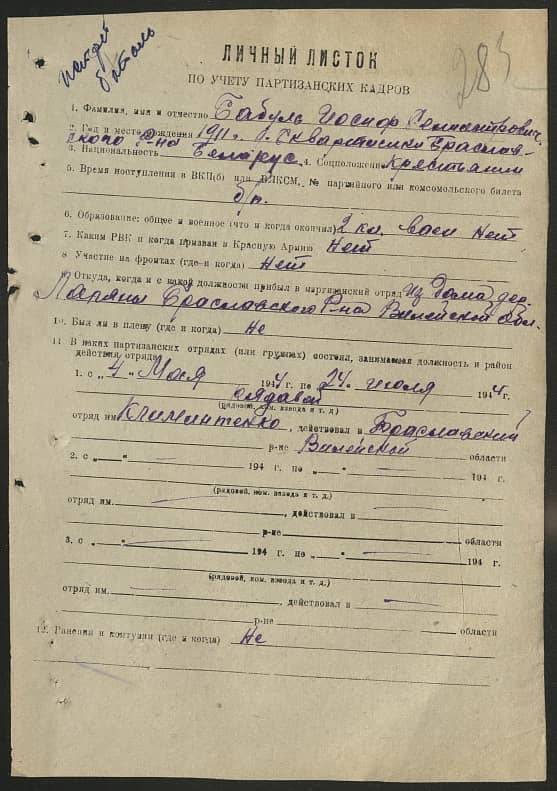 283
ЛИЧНЫЙ ЛИСТОК
ПО УЧЕТУ ПАРТИЗАНСКИХ КАДРОВ
1. Фамилия, имя и отчество Бабуль Иосиф
2. Год и место рождения 1911 г. д.
ского р-на
3. Национальность Беларус 4. Соцположение Крестьянин
5. Время поступления в ВКП(б) или ВЛКСМ, № партийного или комсомольского билета
б/п.
6. Образование: общее и военное (что и когда окончил) 2 кл. воен нет
7. Каким РВК и когда призван в Красную Армию Нет
8. Участие на фронтах (где и когда) Нет
9. Откуда, когда и с какой должности прибыл в партизанский отряд Из дома дер.
Браславского Р-на Вилейской обл.
10. Был ли в плену (где и когда) Не
11. В каких партизанских отрядах (или группах) состоял, занимаемая должность и район
действия отряда:
1. с „ 4 “ Мая 1944 г. по „ 24 “ июля 1944 г.
рядавой
(рядовой, ком. взвода и т. д.)
отряд им. Климинтенко, действовал в Браславский
р-не Вилейской области
2. с „ “ 194 г. по „ “ 194 г.
(рядовой, ком. взвода и т. д.)
отряд им. , действовал в
р-не области
3. с „ “ 194 г. по „ “ 194 г.
(рядовой, ком. взвода и т. д.)
отряд им. , действовал в
р-не области
12. Ранения и контузии (где и когда) Не